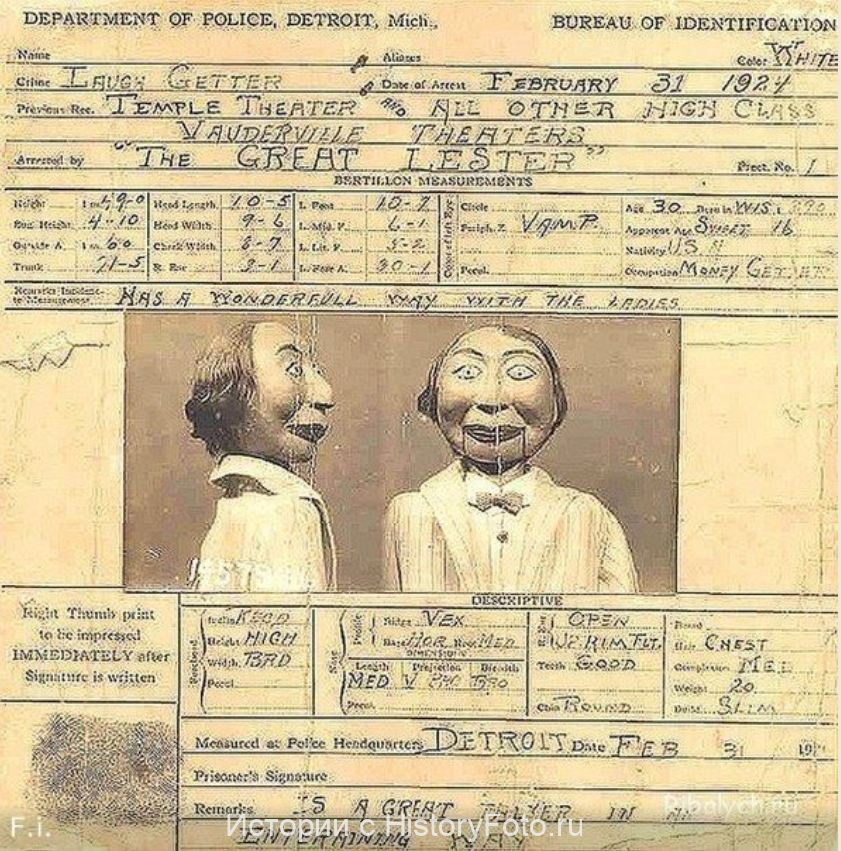 DEPARTMENT OF POLICE, DETROIT, Mich.,
BUREAU OF IDENTIFICATION
Name
Aliases
Color WHITE
Crime LAUGH GETTER
Date of Arrest FEBRUARY 31 1924
Previous Rec. TEMPLE THEATER AND ALL OTHER HIGH CLASS
VAUDERVILLE THEATERS
Arrested by "THE GREAT LESTER"
Prect. No. 1
BERTILLON MEASUREMENTS
Height 1 m 49-0 Head Length 10-5 L. Foot 10-7 Circle Age 30 Born in WIS.
Eng. Height 4-10 Head Width 9-6 L. Mid. F. Periph. Z. VAMP. Apparent Age SWEET 16
Outside A. 1 m. 60 Cheek Width 8-7 L. Lit. F. 5-2 Nativity U.S.
Trunk 71-5 R. Ear 9-1 L. Fore A. 30-1 Pecul. Occupation MONEY GETTER
Remarks Incident to Measurement HAS A WONDERFULL WAY WITH THE LADIES
DESCRIPTIVE
Right Thumb print
to be impressed
IMMEDIATELY after
Signature is written
Forehead
Height HIGH
Width BRD
Pecul
Nose
Profile
Ridge VEX
Base HOR Root MED
DIMENSIONS
Length Projection Breadth
MED
Pecul
OPEN
Teeth GOOD
Chin ROUND
Beard
Hair CHEST
Complexion MED
Weight 20
Build SLIM
Measured at Police Headquarters DETROIT Date FEB 31 19
Prisoner's Signature
Remarks IS A GREAT IN AN
ENTERTAINING WAY
Ribalych.ru
F.i.
Истории с HistoryFoto.ru